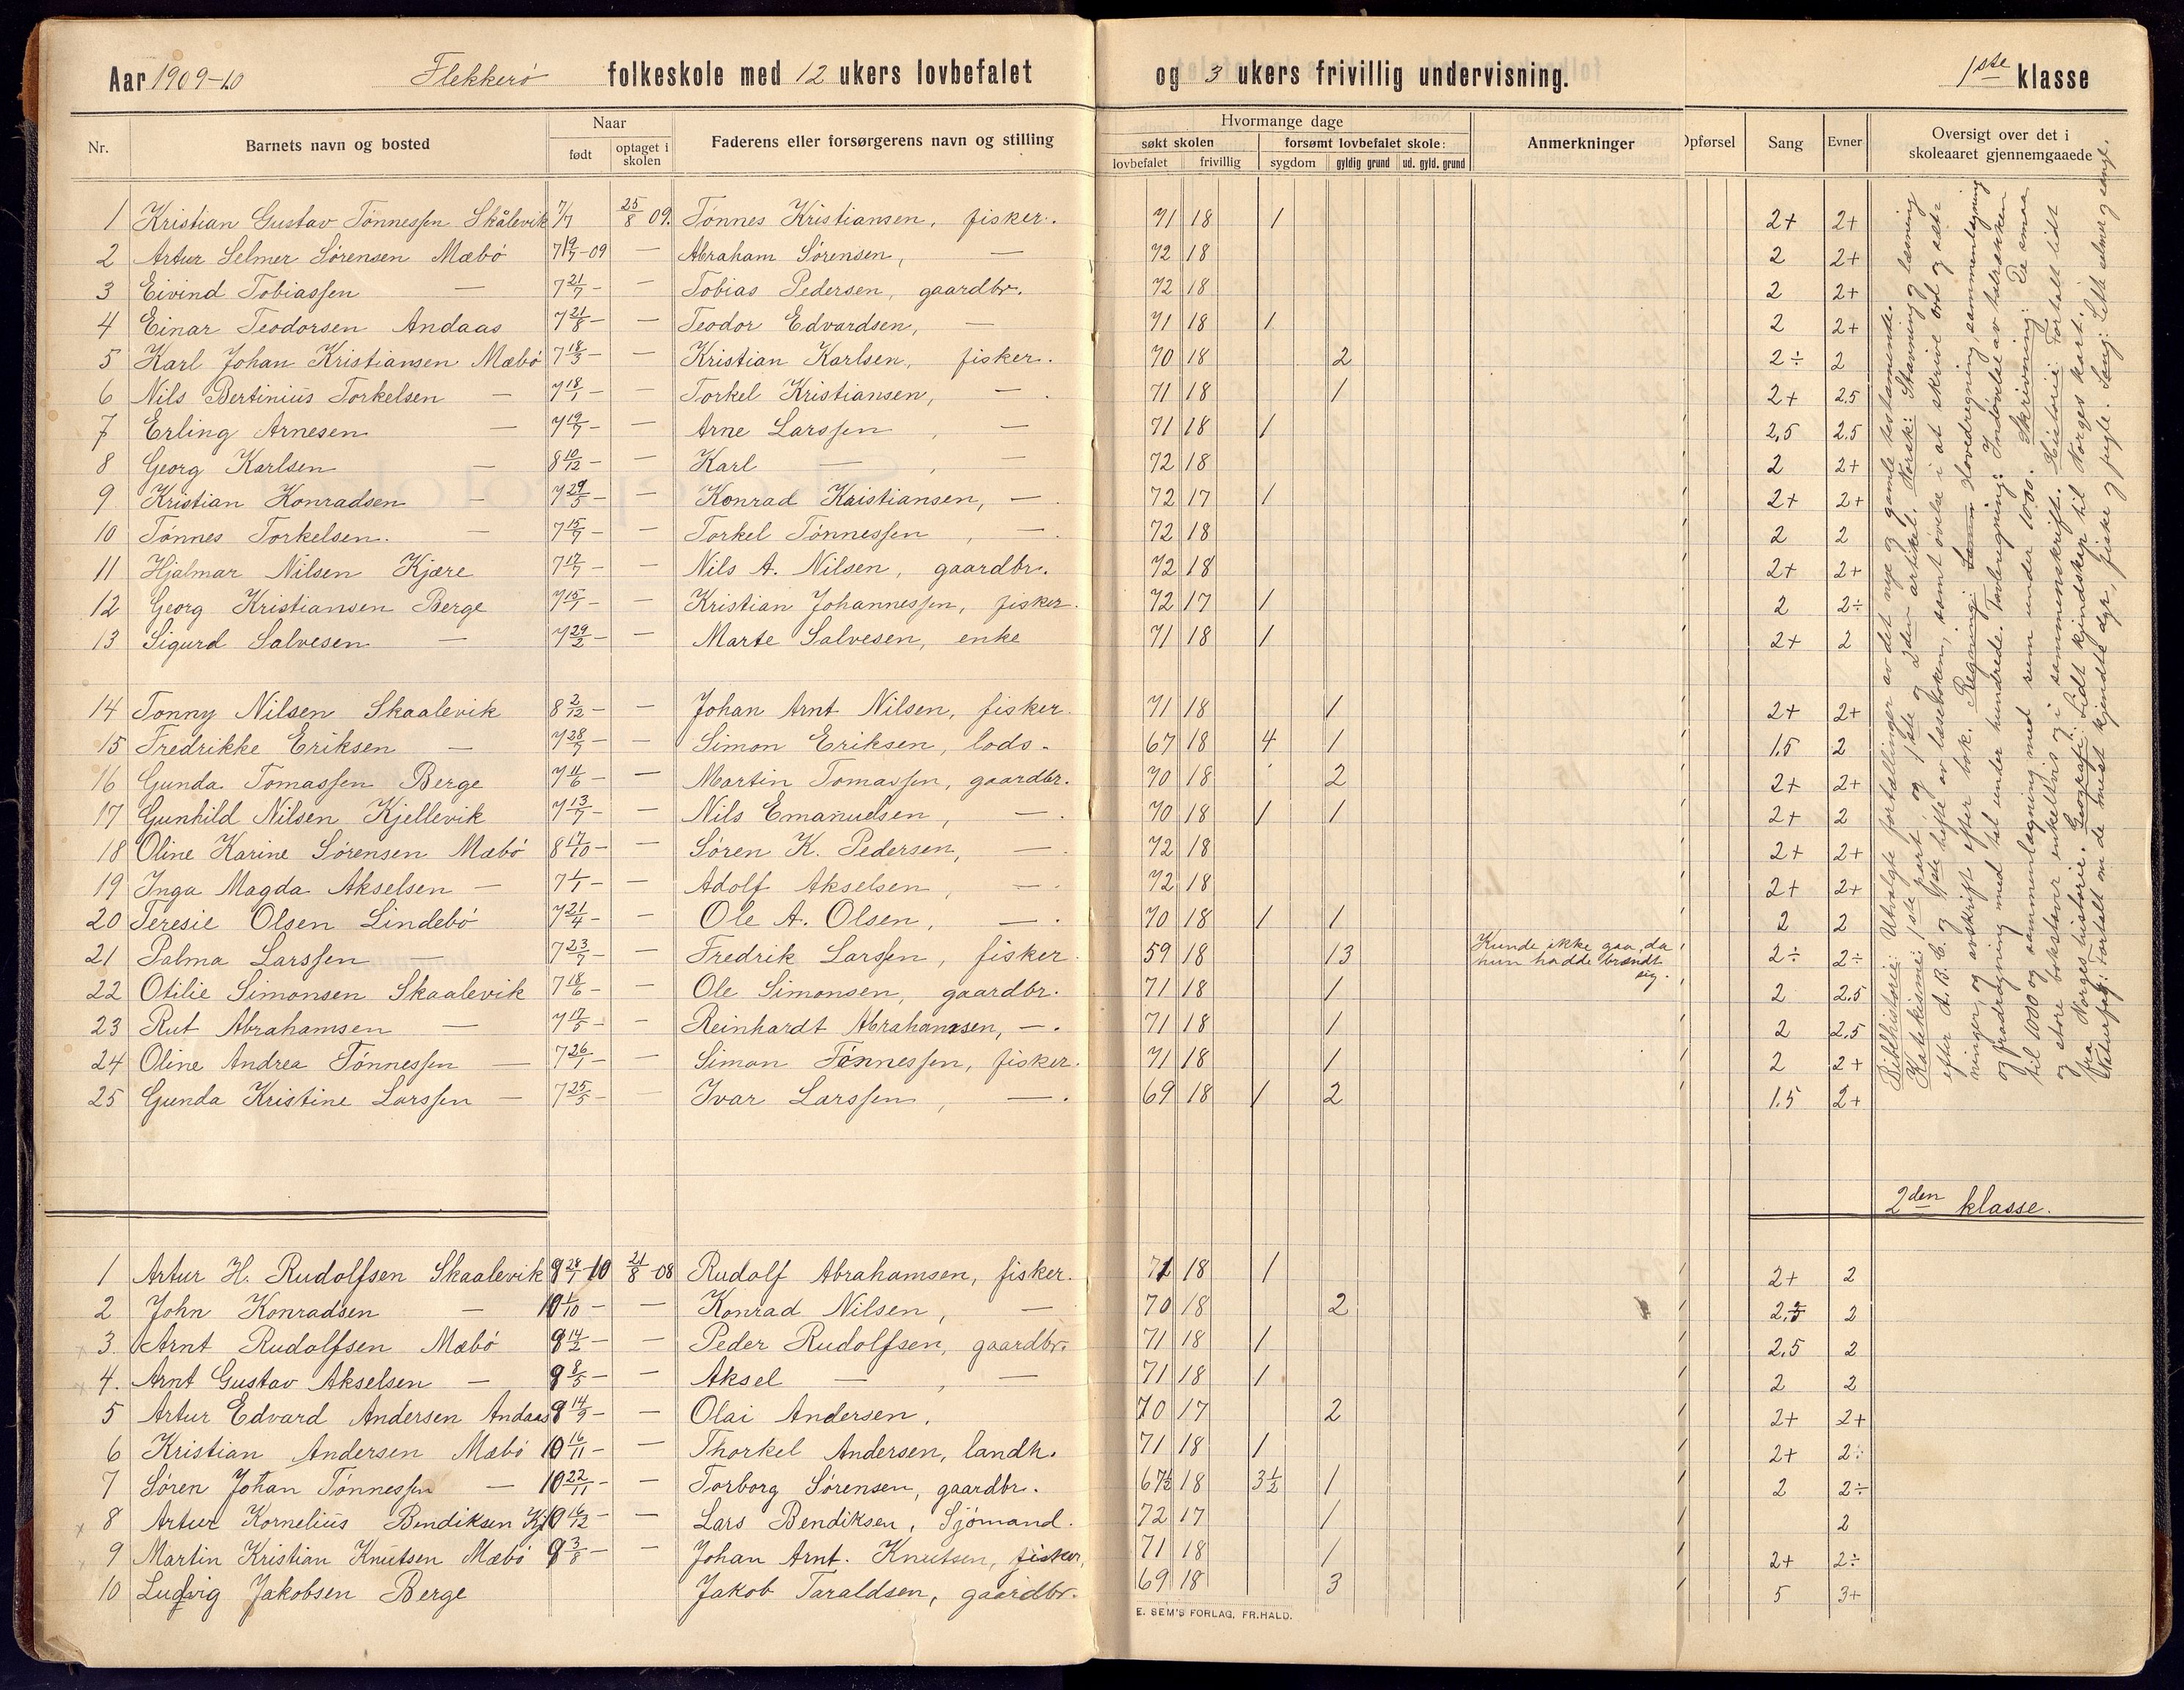 Aar 1909-10 Flekkerö folkeskole med 12 ukers lovbefalet og 3 ukers frivillig undervisning. 1ste klasse
Nr. Barnets navn og bosted Naar født optaget i skolen Faderens eller forsørgerens navn og stilling Hvormange dage søkt skolen lovbefalet frivillig forsømt lovbefalet skole: sygdom gyldig grund ud. gyld. grund Anmerkninger Opførsel Sang Evner Oversigt over det i skoleaaret gjennemgaaede
1 Kristian Gustav Tønnessen Skålevik 7/7 25/8 09. Tønnes Kristiansen, fisker. 71 18 1 2+ 2+
2 Artur Selmer Sörensen Mæbö 7 19/7-09 — Abraham Sörensen, — 72 18 2 2+
3 Eivind Tobiassen — 7 21/7 - — Tobias Pedersen, gaardbr. 72 18 2 2+
4 Einar Teodorsen Andaas 7 21/8 - — Teodor Edvardsen, — 71 18 1 2 2+
5 Karl Johan Kristiansen Mæbö 7 18/3 - — Kristian Karlsen, fisker. 70 18 2 2÷ 2
6 Nils Bertinius Torkelsen — 7 18/1 - — Torkel Kristiansen, — 71 18 1 2+ 2.5
7 Erling Arnesen — 7 19/7 - — Arne Larssen, — 71 18 1 2,5 2.5
8 Georg Karlsen — 8 10/12 - — Karl —, — 72 18 2 2+
9 Kristian Konradsen — 7 29/5 - — Konrad Kristiansen, — 72 17 1 2+ 2+
10 Tønnes Torkelsen. — 7 15/7 - — Torkel Tønnessen, — 72 18 2 2
11 Hjalmar Nilsen Kjære 7 17/7 - — Nils A. Nilsen, gaardbr. 72 18 2+ 2+
12 Georg Kristiansen Berge 7 15/7 - — Kristian Johannessen, fisker. 72 17 1 2 2÷
13 Sigurd Salvesen — 7 29/2 - — Marte Salvesen, enke 71 18 1 2+ 2
14 Tonny Nilsen Skaalevik 8 2/12 - — Johan Arnt Nilsen, fisker. 71 18 1 2+ 2+
15 Fredrikke Eriksen — 7 28/7 - — Simon Eriksen, lods. 67 18 4 1 1.5 2
16 Gunda Tomassen Berge 7 11/6 - — Martin Tomassen, gaardbr. 70 18 2 2+ 2+
17 Gunhild Nilsen Kjellevik 7 13/7 - — Nils Emanuelsen, — 70 18 1 1 2+ 2
18 Oline Karine Sörensen Mæbö 8 17/10 - — Sören K. Pedersen, — 72 18 2+ 2+
19 Inga Magda Akselsen — 7 1/1 - — Adolf Akselsen, — 72 18 2+ 2+
20 Teresie Olsen Lindebö 7 21/4 - — Ole A. Olsen, — 70 18 1 1 2 2
21 Palma Larssen — 7 23/7 - — Fredrik Larssen, fisker. 59 18 13 Kunde ikke gaa, da hun hadde brændt sig. 2÷ 2÷
22 Otilie Simonsen Skaalevik 7 18/6 - — Ole Simonsen, gaardbr. 71 18 1 2 2.5
23 Rut Abrahamsen — 7 17/5 - — Reinhardt Abrahamsen, —. 71 18 1 2 2.5
24 Oline Andrea Tønnessen — 7 26/1 - — Simon Tønnessen, fisker. 71 18 1 2 2+
25 Gunda Kristine Larssen — 7 25/5 - — Ivar Larssen, — 69 18 1 2 1.5 2+
Biblhistorie: Utvalgte fortællinger av det nye og gamle testamente.
Katekisme: 1ste part og 1ste og 2den artikel. Norsk: Stavning og læsning
efter A. B. C. og 1ste hefte av læseboken, samt øvelse i at skrive ord og sæt-
ninger, og avskrift efter bok. Regning: Hovedregning, sammenlægning
og fradragning med tal under hundrede. Tavleregning: Indøvelse av talrækken
til 1000 og sammenlægning med sum under 1000. Skrivning: De smaa
og store bokstaver enkeltvis og i sammenskrift. Historie: Fortalt lidt
fra Norges historie. Geografi: Lidt kjendskap til Norges kart.
Naturfag: Fortalt om de mest kjendte dyr, fiske og fugle. Sang: Lette salmer og sange.
2den klasse.
1 Artur H. Rudolfsen Skaalevik 9 28/1 10 21/8 -08 Rudolf Abrahamsen, fisker. 71 18 1 2+ 2
2 John Konradsen — 10 1/10 - — Konrad Nilsen, — 70 18 2 2
3. Arnt Rudolfsen Mæbö 9 14/2 - — Peder Rudolfsen, gaardbr. 71 18 1 2,5 2
4. Arnt Gustav Akselsen — 9 8/5 - — Aksel —, — 71 18 1 2 2
5 Artur Edvard Andersen Andaas 9 14/9 - — Olai Andersen, 70 17 2 2+ 2+
6 Kristian Andersen Mæbö 10 16/11 - — Thorkel Andersen, landh. 71 18 1 2+ 2÷
7 Sören Johan Tønnessen — 10 22/11 - — Torborg Sörensen, gaardbr. 67½ 18 3½ 1 2 2÷
x 8 Artur Kornelius Bendiksen Kj 10 16/12 - — Lars Bendiksen, Sjömand. 72 17 1 2
9 Martin Kristian Knutsen Mæbö 9 3/8 - — Johan Arnt. Knutsen, fisker, 71 18 1 2+ 2÷
10 Ludvig Jakobsen Berge Jakob Taraldsen, gaardbr. 69 18 3 5 3+
E. SEM'S FORLAG, FR.HALD.